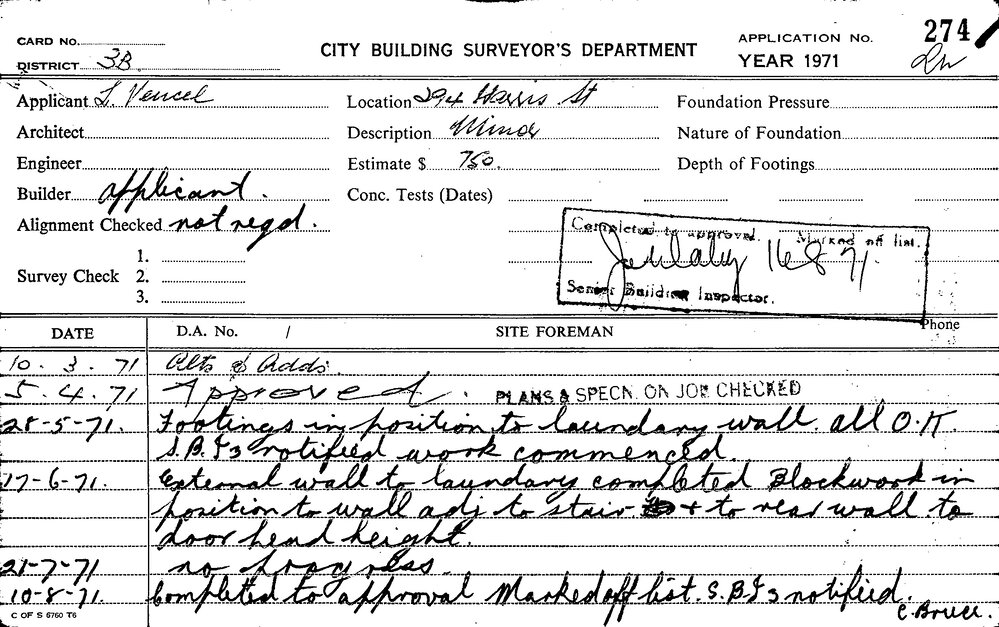 CARD No.
DISTRICT 3B
CITY BUILDING SURVEYOR'S DEPARTMENT
APPLICATION No. 274
YEAR 1971
Applicant L. Vencel
Location 294 Harris St
Foundation Pressure
Architect
Description Minor
Nature of Foundation
Engineer
Estimate $ 750.
Depth of Footings
Builder applicant.
Conc. Tests (Dates)
Alignment Checked not reqd.
Survey Check
1.
2.
3.
Completed to approval. Marked off list.
16 8 71
Senior Building Inspector.
DATE
D.A. No. /
SITE FOREMAN
Phone
10. 3. 71 Alts & Adds.
5. 4. 71 Approved. PLANS & SPECN. ON JOB CHECKED
28-5-71. Footings in position to laundary wall. all O.K.
S.B.I3 notified work commenced.
17-6-71. External wall to laundary completed Blockwork in
position to wall adj to stair + to rear wall to
door head height.
21-7-71 no progress.
10-8-71. Completed to approval Marked off list. S.B.I3 notified.
C. Bruce.
C OF S 6760 T6